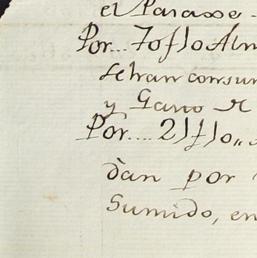 el Parasse
Por... 7 of l o Alm
se han consum
y Gano R
Por.... 2
dan por
sumido, en